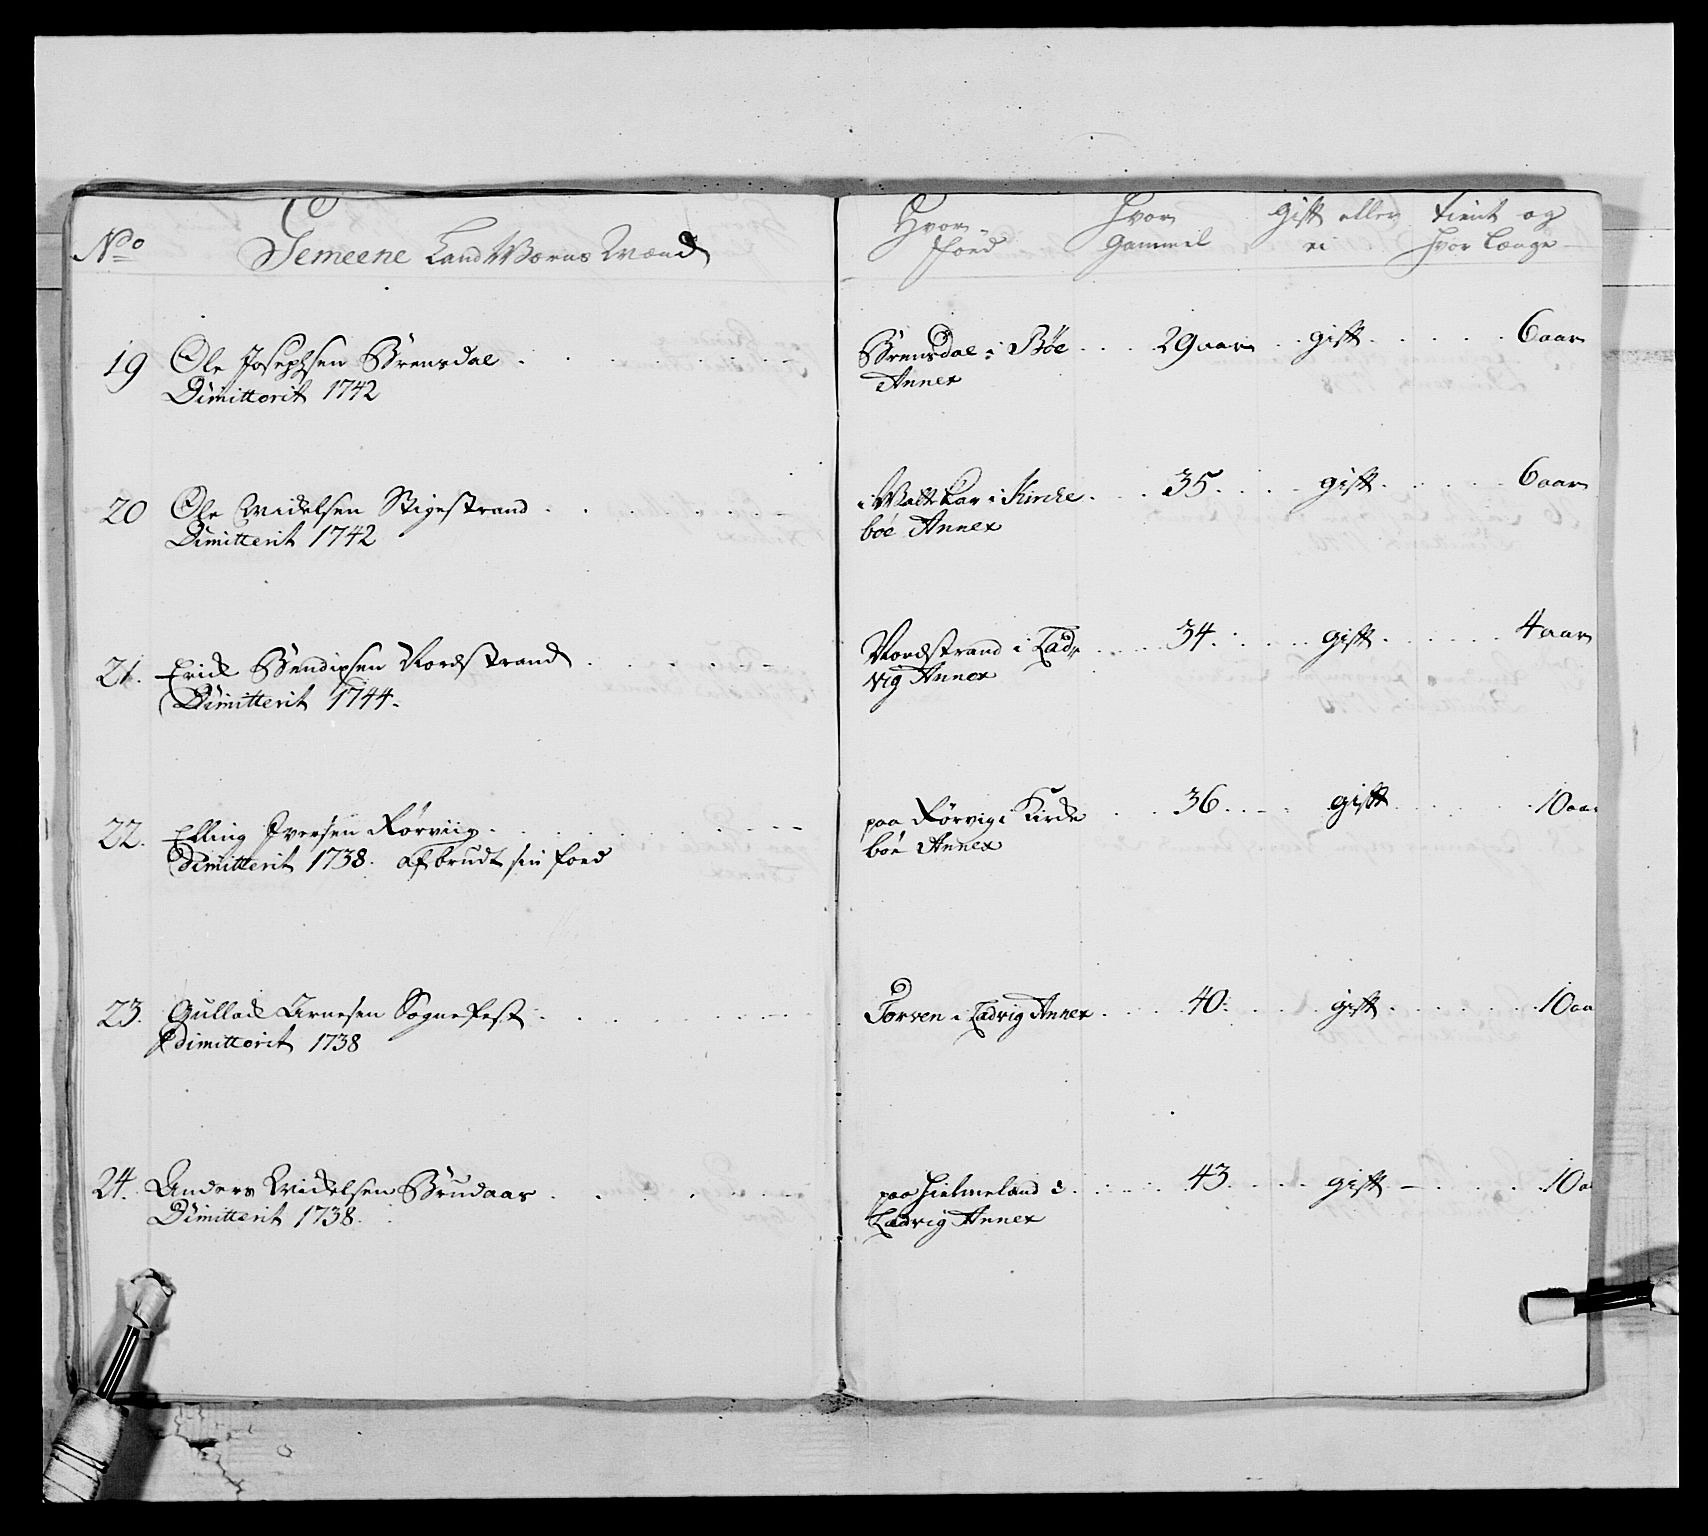 No Gemeene Land Wærns Mænd
Hvor föed
Hvor Gammel
gift eller ei
tient og hvor længe
19 Ole Josephsen Brensdal
Dimitterit 1742
Brensdal i Böe Annex
29 aar gift 6 aar
20 Ole Michelsen Stigestrand
Dimitterit 1742
i Kirche böe Annex
35 gift 6 aar
21. Erich Bendixsen Nordstrand
Dimitterit 1744.
Nordstrand i Lad vig Annex
34. gift 4 aar
22. Elling Iversen Rörviig
dimitterit 1738. af brudt sin
paa Rörvig i Kirche
böe Annex
36 gift 10 aa
23. Gullach Arnesen Sognefest
dimitterit 1738
Torven i Ladvig Annex 40. gift 10 aa
24. Anders Michelsen Brudaas
Dimitterit 1738.
paa Hielmeland i
Ladvig Annex
43 gift 10 a